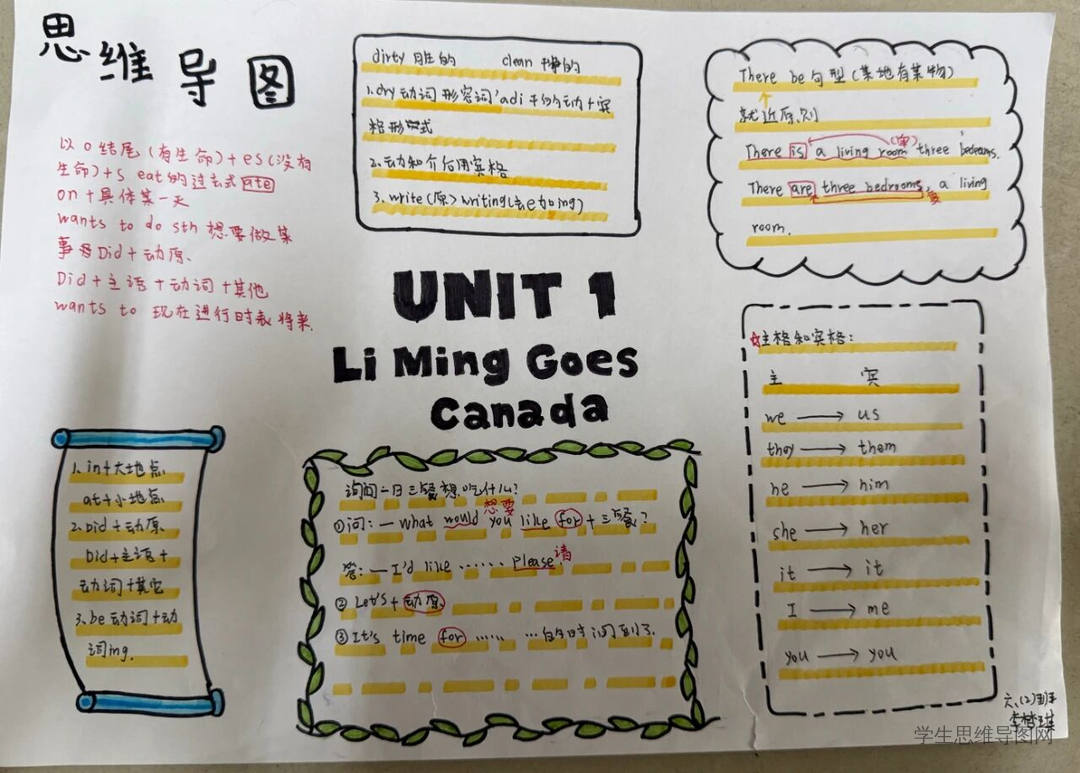 思维导图
以o结尾(有生命)+es(没有
生命)+s eat的过去式ate
on+具体某一天
wants to do sth 想要做某
事 Did+动原.
Did+主语+动词+其他
wants to 现在进行时表将来.
dirty 脏的 clean 干净的
1.dry 动词 形容词 adj
格形式
2.动和介后用宾格
3.write(原)writing(去e加ing)
There be句型(某地有某物)
就近原则
There is a living room three bedrooms.
There are three bedrooms, a living
room.
UNIT 1
Li Ming Goes
Canada
☆主格和宾格:
主 宾
we → us
they → them
he → him
she → her
it → it
I → me
you → you
1.in+大地点.
at+小地点.
2.Did+动原.
Did+主语+
动词+其它
3.be动词+动
词ing.
询问一日三餐想吃什么?
想要
①问:—what would you like for+三餐?
答:—I'd like …… please 请
② Let's+动原.
③ It's time for …… …的时间到了.
六、(2)班
学生思维导图网